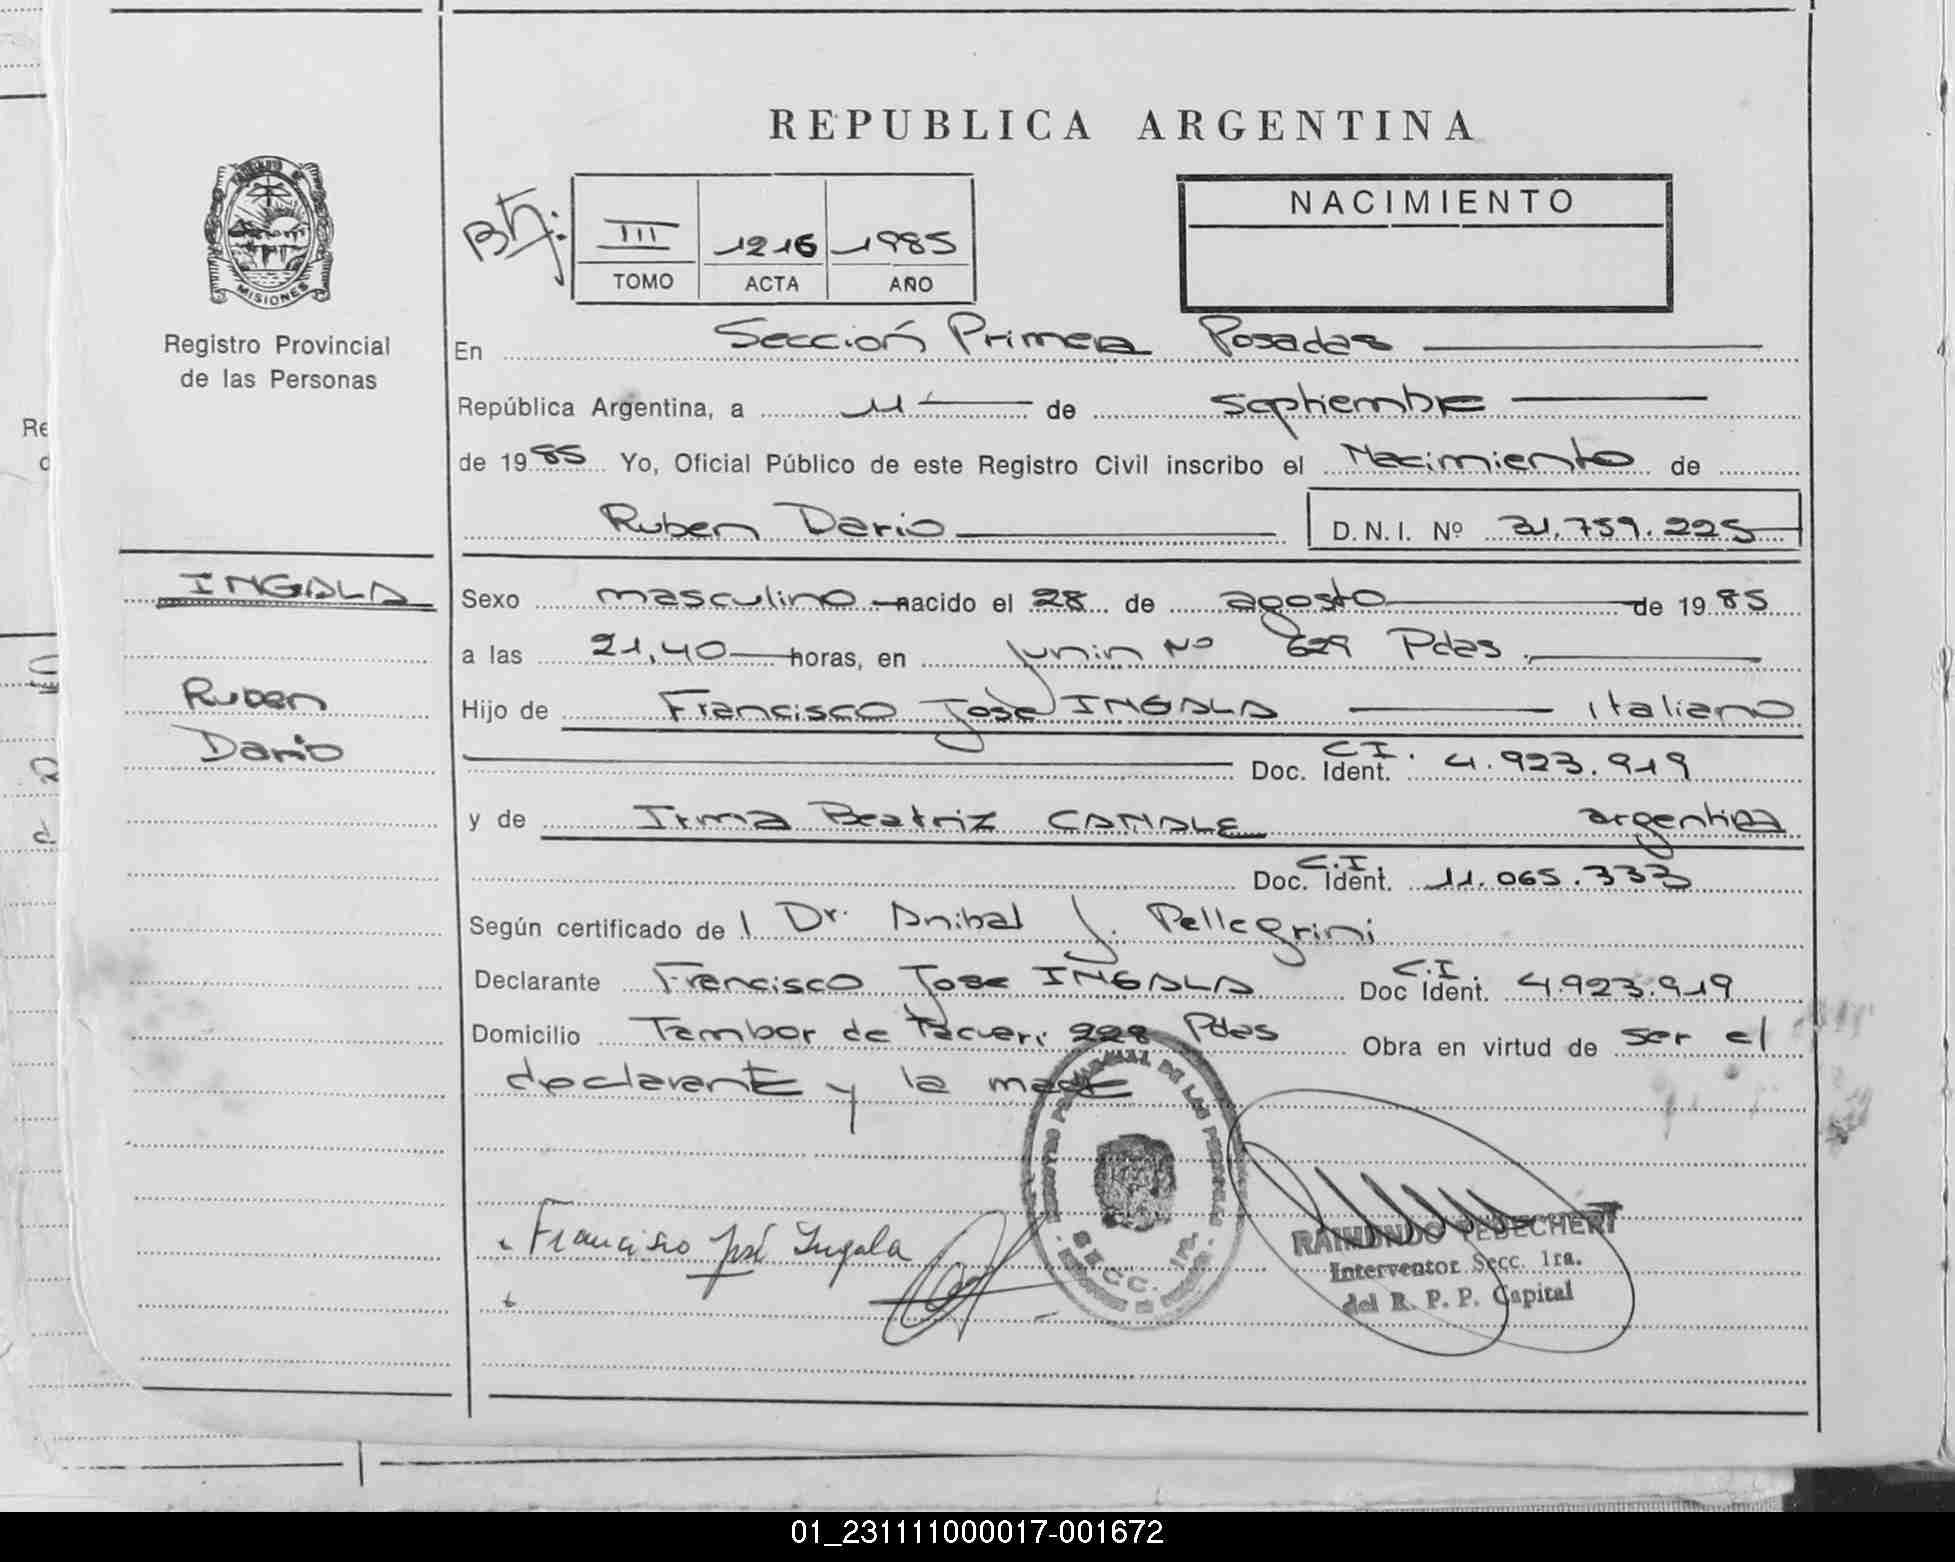 REPUBLICA ARGENTINA
MISIONES
Registro Provincial
de las Personas
III 1216 1985
TOMO ACTA AÑO
NACIMIENTO
En Sección Primera Posadas
República Argentina, a 11 de septiembre
de 1985 Yo, Oficial Público de este Registro Civil inscribo el Nacimiento de
Ruben Dario D.N.I. Nº 31.759.225
INGALA
Ruben
Dario
Sexo masculino nacido el 28 de agosto de 1985
a las 21,40 horas, en Junin Nº 629 Pdas.
Hijo de Francisco José INGALA italiano
Doc. Ident. C.I. 4.923.919
y de Irma Beatriz CANALE argentina
Doc. Ident. C.I. 11.065.333
Según certificado de l Dr. Anibal J. Pellegrini
Declarante Francisco Jose INGALA Doc Ident. C.I. 4.923.919
Domicilio Tambor de Tacuari 228 Pdas Obra en virtud de ser el
declarante y la madre
REGISTRO PROVINCIAL DE LAS PERSONAS
SECC. 1ra.
Francisco José Ingala
RAIMUNDO
Interventor Secc. 1ra.
del R. P. P. Capital
01_231111000017-001672